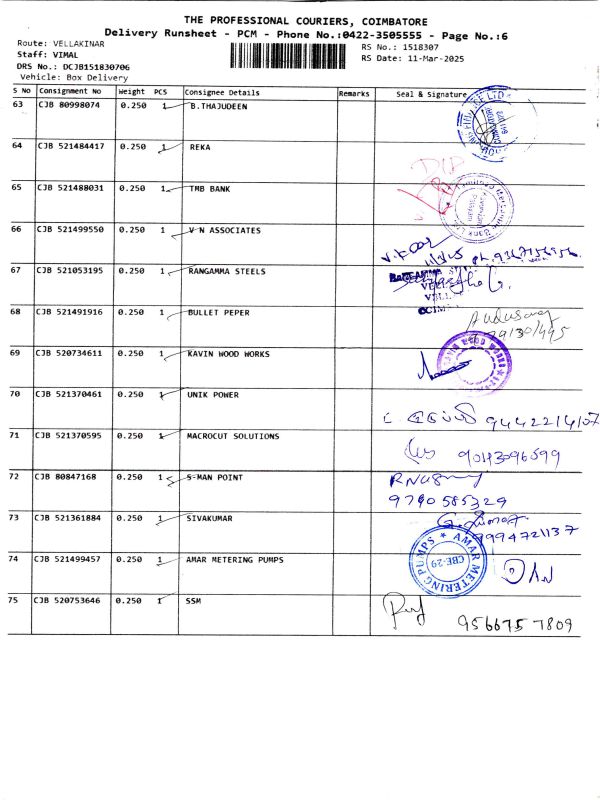 THE PROFESSIONAL COURIERS, COIMBATORE
Delivery Runsheet - PCM - Phone No.:0422-3505555 - Page No.:6
Route: VELLAKINAR
RS No.: 1518307
Staff: VIMAL
RS Date: 11-Mar-2025
DRS No.: DCJB151830706
Vehicle: Box Delivery
S No Consignment No Weight PCS Consignee Details Remarks Seal & Signature
63 CJB 80998074 0.250 1 B.THAJUDEEN
64 CJB 521484417 0.250 1 REKA
65 CJB 521488031 0.250 1 TMB BANK
66 CJB 521499550 0.250 1 V N ASSOCIATES
67 CJB 521053195 0.250 1 RANGAMMA STEELS
68 CJB 521491916 0.250 1 BULLET PEPER
69 CJB 520734611 0.250 1 KAVIN WOOD WORKS
70 CJB 521370461 0.250 1 UNIK POWER
71 CJB 521370595 0.250 1 MACROCUT SOLUTIONS
72 CJB 80847168 0.250 1 S-MAN POINT
9790585329
73 CJB 521361884 0.250 1 SIVAKUMAR
9994721137
74 CJB 521499457 0.250 1 AMAR METERING PUMPS
AMAR METERING PUMPS
CBE-29
75 CJB 520753646 0.250 1 SSM
9566757809